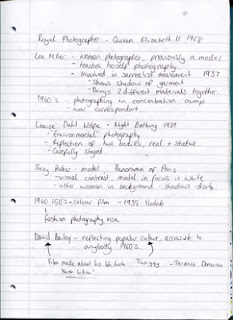 Royal Photographer - Queen Elizabeth II 1968
Lee Miller - woman photographer, previously a model
- teaches herself photography
- Involved in surrealist movement 1937
- Shows shadow of garment
- Brings 2 different materials together.
1940's - photographing in concentration camps
- war correspondent.
Louise Dahl Wolfe - Night Bathing 1939
- Environmental photography
- Reflection of two bodies, real + statue.
- Carefully staged
Suzy Parker - model Panorama of Paris
- visual contrast, model in focus in white
- other woman in background - shadows dark.
1940 1950's + colour film - 1935 Kodak
fashion photography rise.
David Bailey - reflecting popular culture, accessible to
anybody 1960's.
Film made about his life Twiggy - Terence Donovan